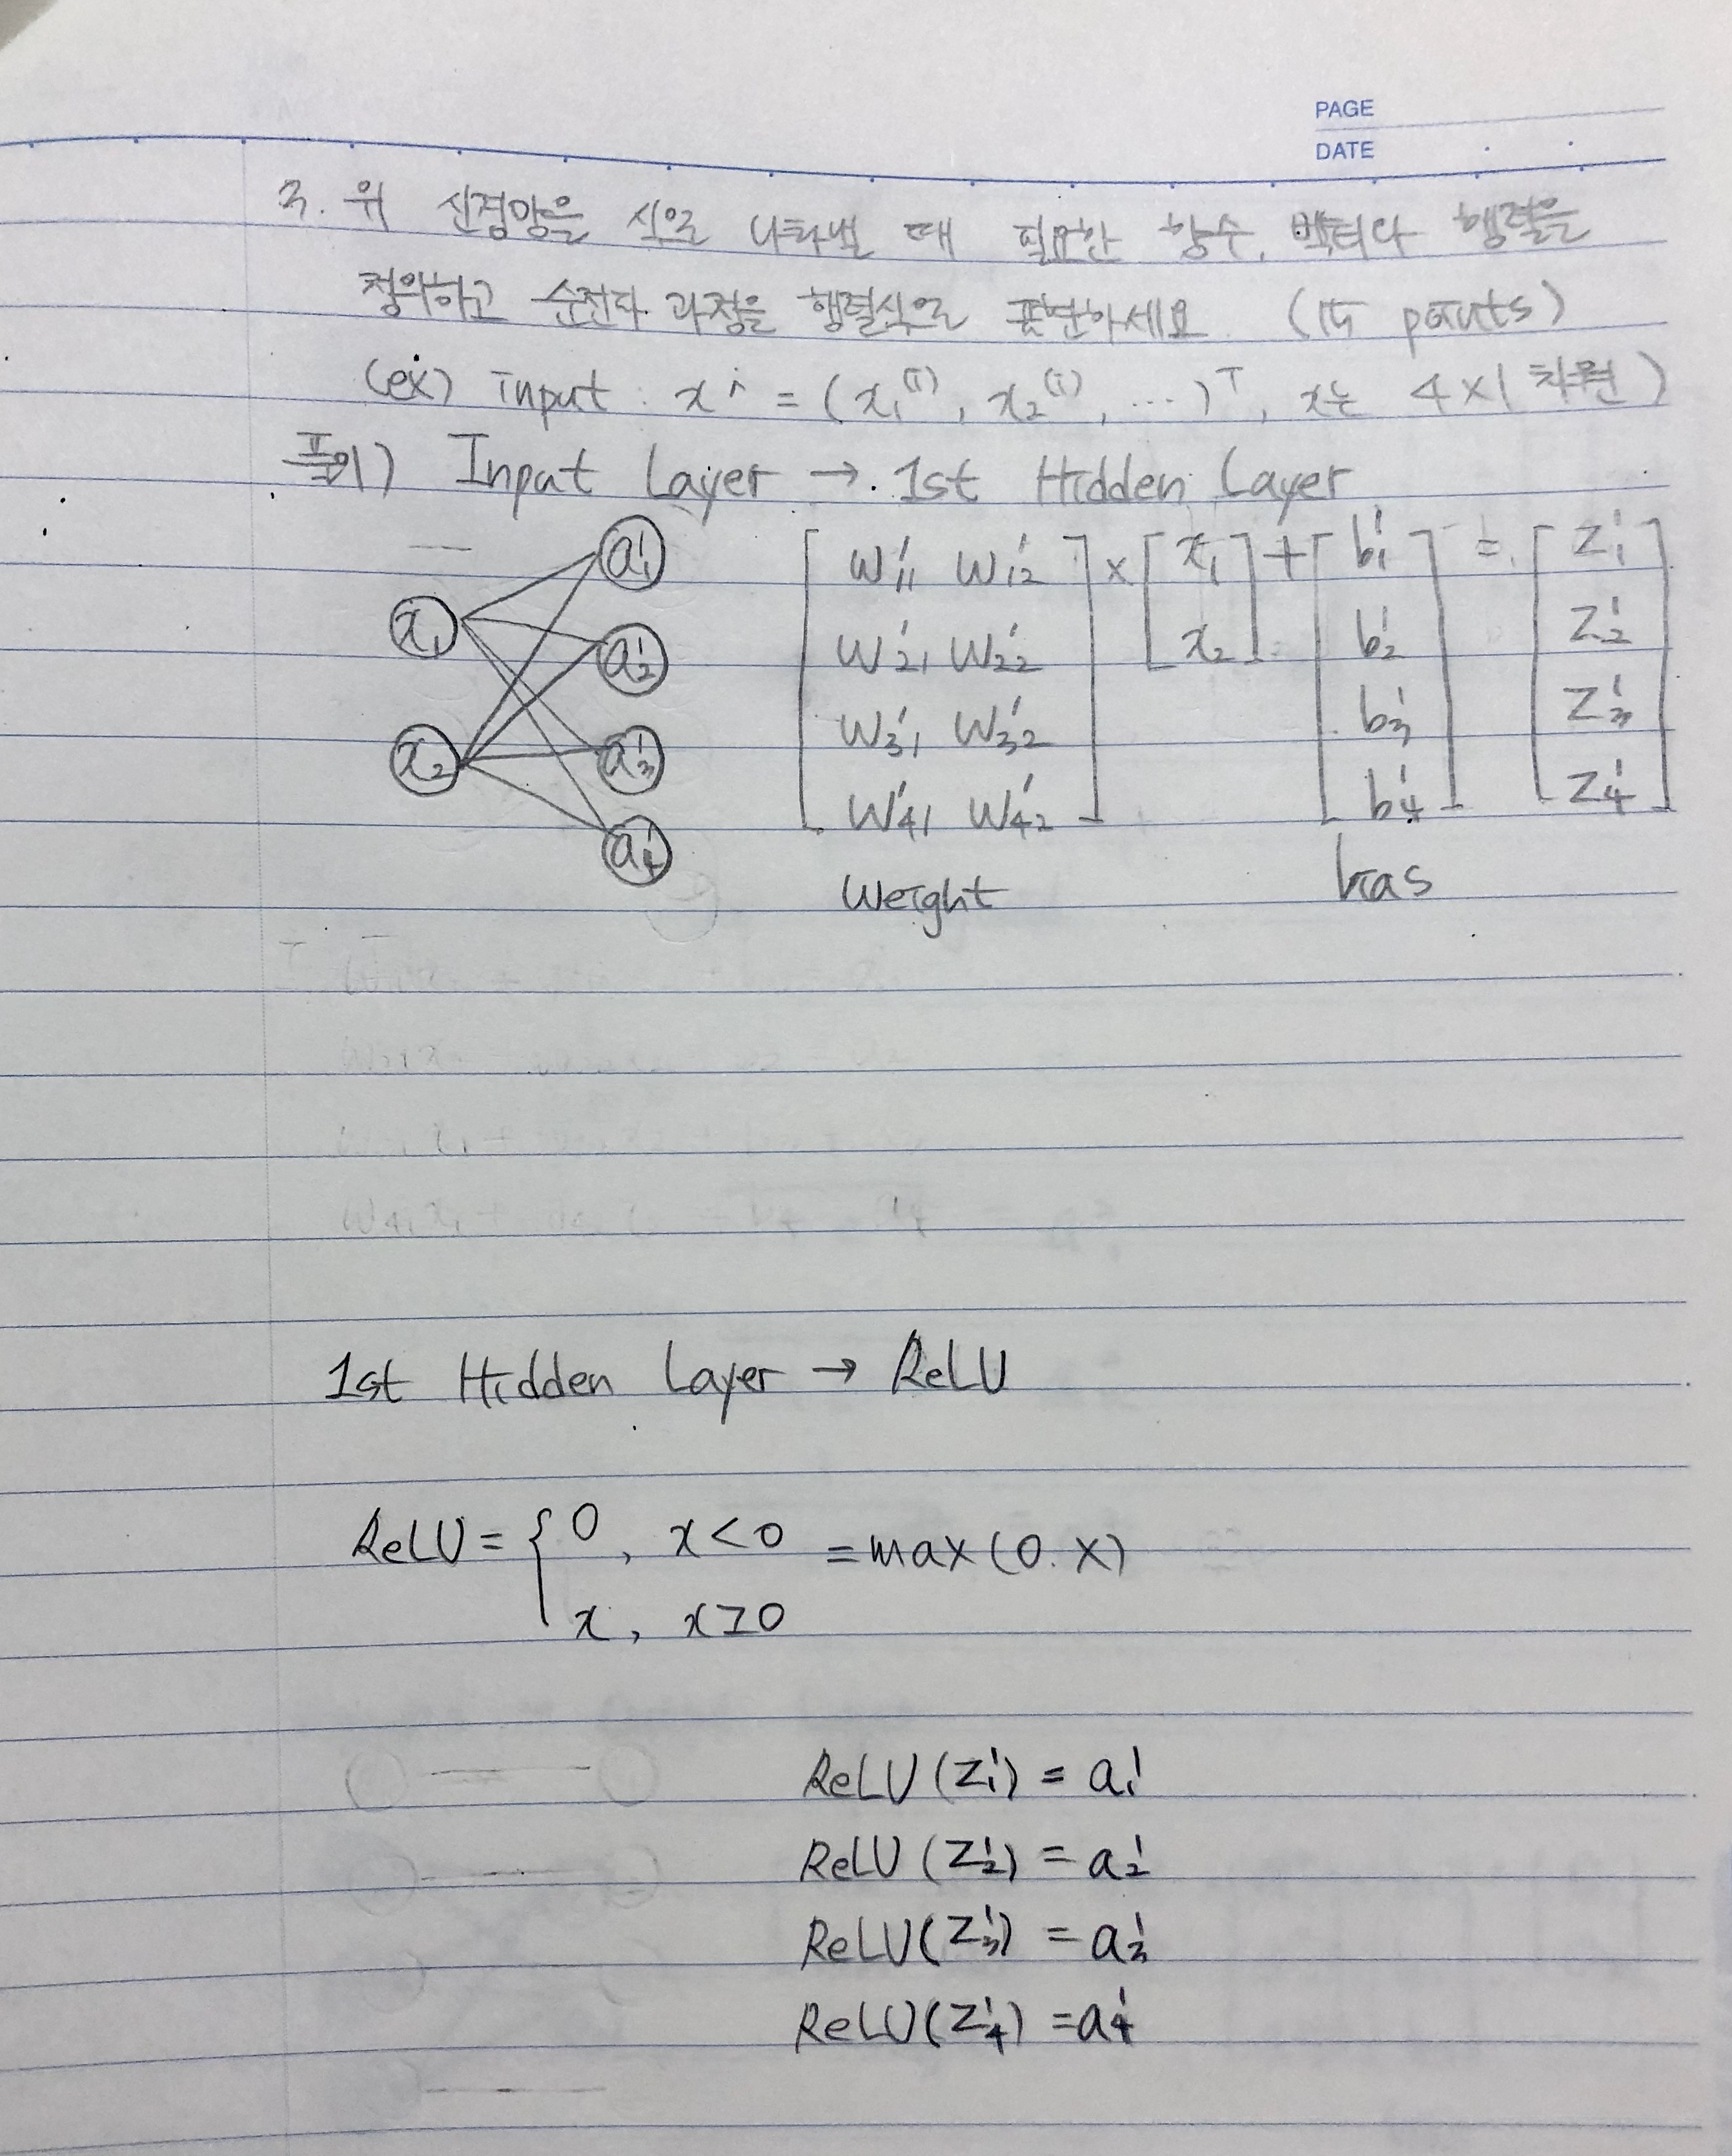 PAGE
DATE
3. 위 신경망을 식으로 나타낼 때 필요한 상수, 벡터나 행렬을
정의하고 순전파 과정을 행렬식으로 표현하세요. (15 points)
(ex) input : xⁱ = (x₁⁽ⁱ⁾, x₂⁽ⁱ⁾, ...)ᵀ, x는 4×1 차원)
풀이) Input Layer → 1st Hidden Layer
x₁ x₂ a₁¹ a₂¹ a₃¹ a₄¹
[w₁₁¹ w₁₂¹] × [x₁] + [b₁¹] = [z₁¹]
[w₂₁¹ w₂₂¹] [x₂] [b₂¹] [z₂¹]
[w₃₁¹ w₃₂¹] [b₃¹] [z₃¹]
[w₄₁¹ w₄₂¹] [b₄¹] [z₄¹]
Weight bias
1st Hidden Layer → ReLU
ReLU = { 0, x<0 = max(0.x)
x, x≥0
ReLU(z₁¹) = a₁¹
ReLU(z₂¹) = a₂¹
ReLU(z₃¹) = a₃¹
ReLU(z₄¹) = a₄¹